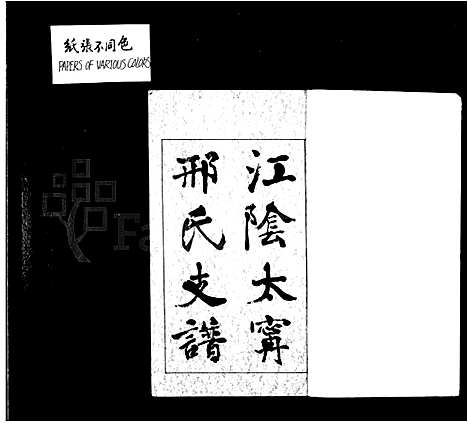 紙張不同色
PAPERS OF VARIOUS COLORS
江陰太寗
邢氏支譜